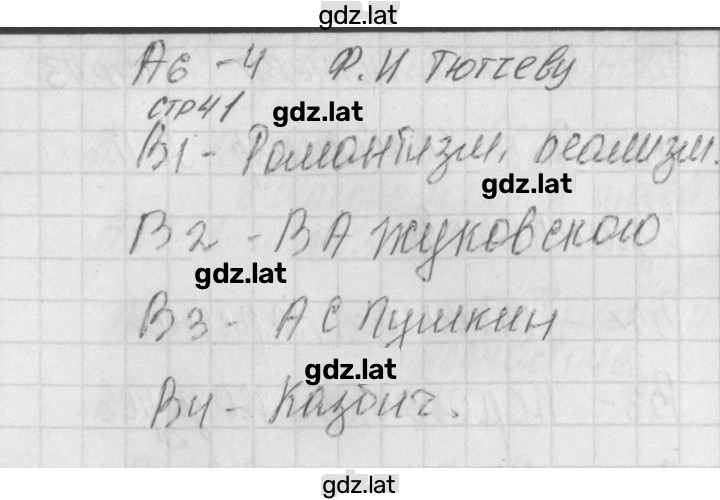 gdz.lat
А6 - 4 Ф.И Тютчеву
стр 41
gdz.lat
В1 - Романтизм, реализм.
gdz.lat
В2 - В А Жуковского
gdz.lat
В3 - А С Пушкин
gdz.lat
В4 - Казбич.
gdz.lat